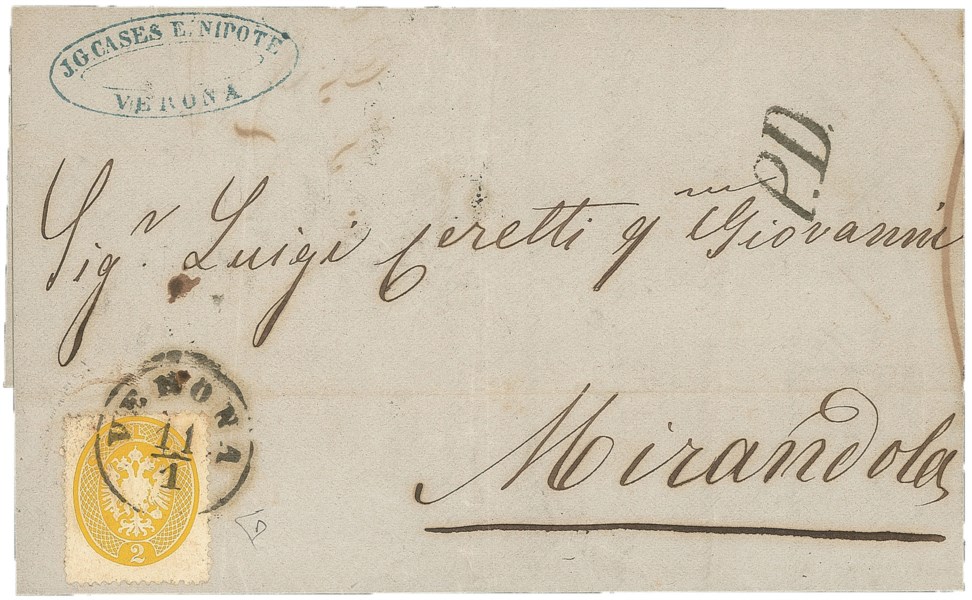 J.G. CASES E. NIPOTE
VERONA
P.D.
Sig.r Luigi Ceretti qm Giovanni
VERONA
11
1
Mirandola
2